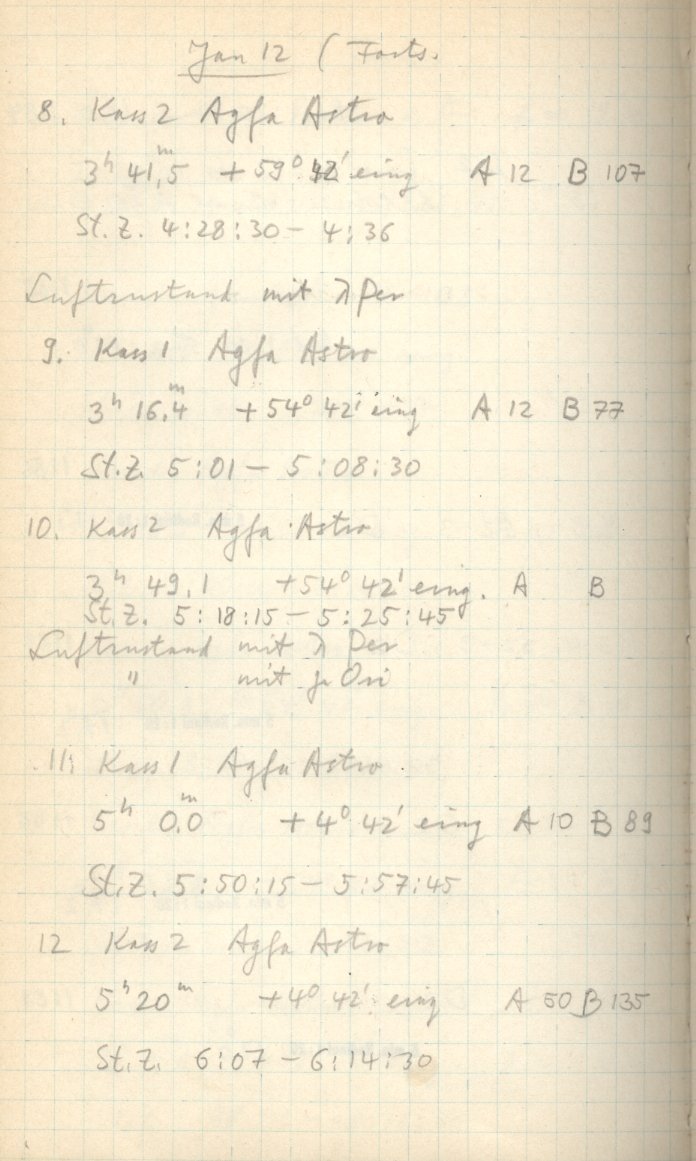 Jan 12 (Forts.
8. Kass 2 Agfa Astro
3ʰ 41,5ᵐ +59° 42' eing A 12 B 107
St.Z. 4:28:30 – 4:36
Luftzustand mit λ Per
9. Kass 1 Agfa Astro
3ʰ 16.4ᵐ +54° 42' eing A 12 B 77
St.Z. 5:01 – 5:08:30
10. Kass 2 Agfa Astro
3ʰ 49,1 +54° 42' eing. A B
St.Z. 5:18:15 – 5:25:45
Luftzustand mit λ Per
" mit Ori
11. Kass 1 Agfa Astro
5ʰ 0.0ᵐ +4° 42' eing A 10 B 89
St.Z. 5:50:15 – 5:57:45
12 Kass 2 Agfa Astro
5ʰ 20ᵐ +4° 42' eing A 50 B 135
St.Z. 6:07 – 6:14:30